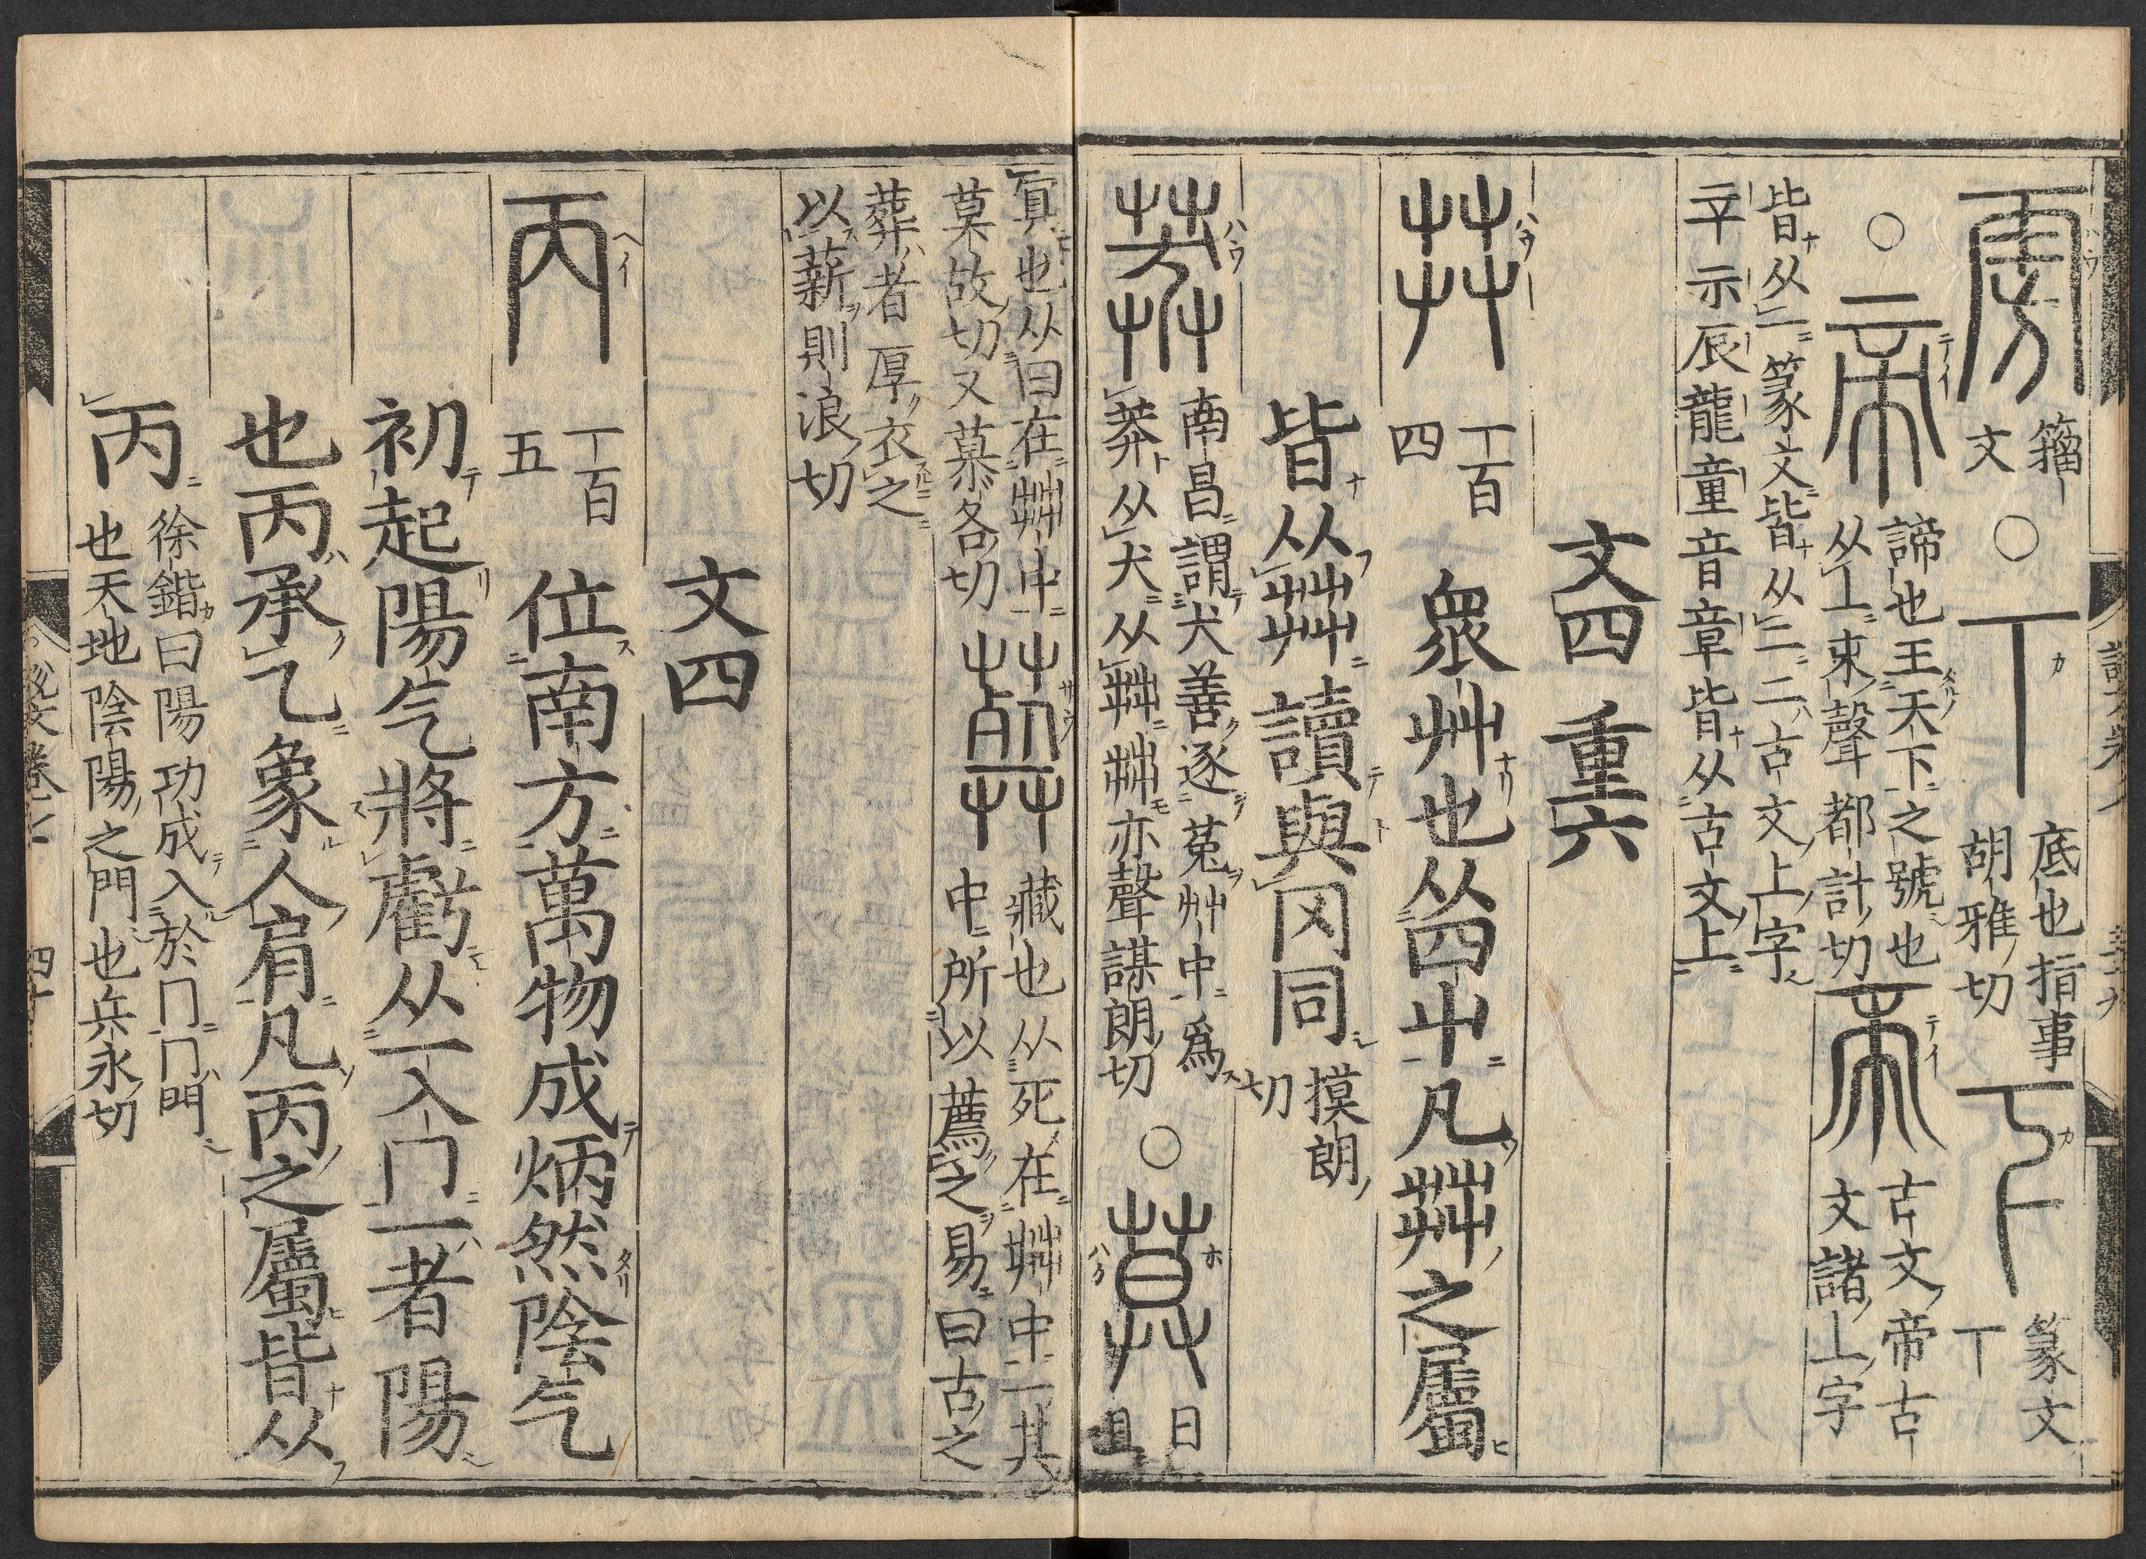 籒
文
○
丅
底也指事
胡雅切
篆文
丅
○
帝
諦也王天下之號也
从丄朿聲都計切
古文帝古
文諸丄字
皆从一篆文皆从二二古文上字
䇂示辰龍童音章皆从古文上
文四 重六
茻
丁百
四
衆艸也从四屮凡茻之屬
皆从茻讀與冈同
摸朗
切
莽
南昌謂犬善逐菟艸中爲
莽从犬从茻茻亦聲謀朗切
○
莫
日
且
冥也从日在茻中
莫故切又慕各切
葬
藏也从死在茻中一其
中所以薦之易曰古之
葬者厚衣之
以薪則浪切
文四
丙
丁百
五
位南方萬物成炳然陰气
初起陽气將虧从一入冂一者陽
也丙承乙象人肩凡丙之屬皆从
丙
徐鍇曰陽功成入於冂冂門
也天地陰陽之門也兵永切